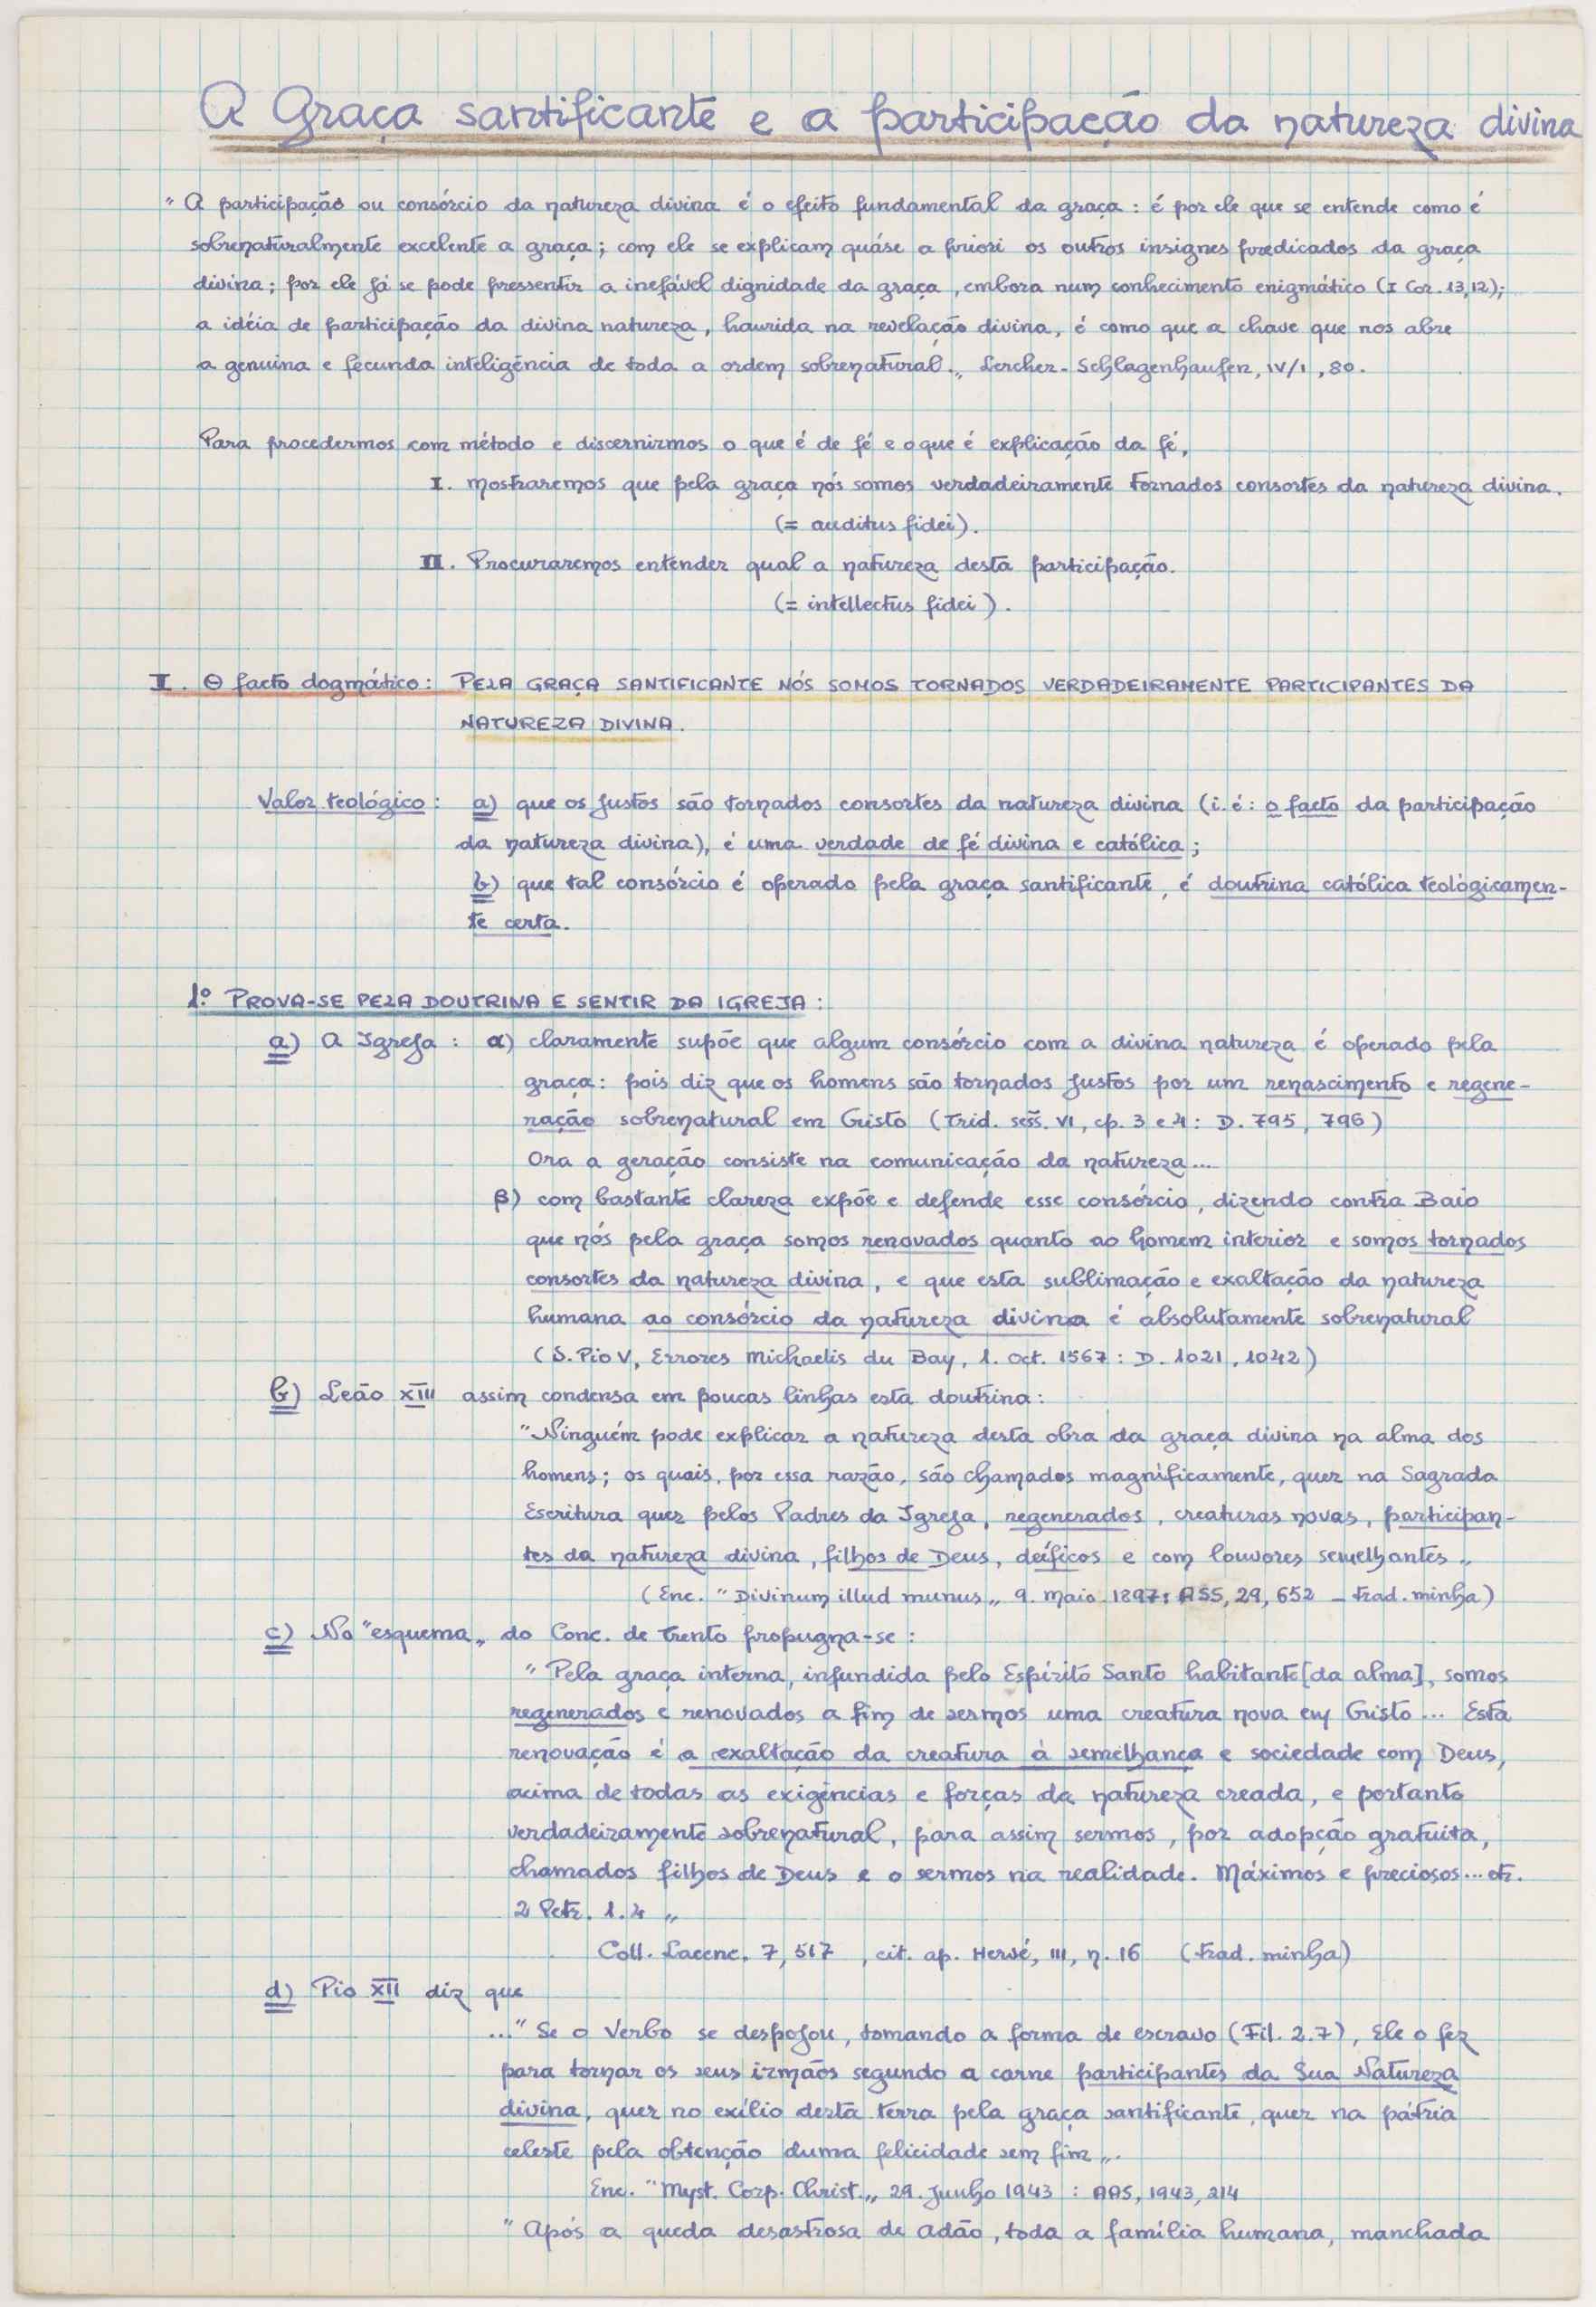 A Graça santificante e a participação da natureza divina
" A participação ou consórcio da natureza divina é o efeito fundamental da graça : é por ele que se entende como é
sobrenaturalmente excelente a graça ; com ele se explicam quáse a priori os outros insignes predicados da graça
divina ; por ele já se pode pressentir a inefável dignidade da graça , embora num conhecimento enigmático (I Cor. 13,12);
a idéia de participação da divina natureza, haurida na revelação divina, é como que a chave que nos abre
a genuína e fecunda inteligência de toda a ordem sobrenatural.„ Lercher-Schlagenhaufen, IV/1 , 80.
Para procedermos com método e discernirmos o que é de fé e o que é explicação da fé,
I. mostraremos que pela graça nós somos verdadeiramente tornados consortes da natureza divina.
(= auditus fidei).
II. Procuraremos entender qual a natureza desta participação.
(= intellectus fidei ).
I. O facto dogmático : PELA GRAÇA SANTIFICANTE NÓS SOMOS TORNADOS VERDADEIRAMENTE PARTICIPANTES DA
NATUREZA DIVINA.
Valor teológico : a) que os justos são tornados consortes da natureza divina (i. é : o facto da participação
da natureza divina), é uma verdade de fé divina e católica ;
b) que tal consórcio é operado pela graça santificante, é doutrina católica teològicamen-
te certa.
1.º PROVA-SE PELA DOUTRINA E SENTIR DA IGREJA :
a) A Igreja : α) claramente supõe que algum consórcio com a divina natureza é operado pela
graça : pois diz que os homens são tornados justos por um renascimento e regene-
ração sobrenatural em Cristo (Trid. sess. VI, cp. 3 e 4 : D. 795, 796)
Ora a geração consiste na comunicação da natureza...
β) com bastante clareza expõe e defende esse consórcio, dizendo contra Baio
que nós pela graça somos renovados quanto ao homem interior e somos tornados
consortes da natureza divina, e que esta sublimação e exaltação da natureza
humana ao consórcio da natureza divina é absolutamente sobrenatural
(S. Pio V, Errores Michaelis du Bay, 1. Oct. 1567 : D. 1021, 1042)
b) Leão XIII assim condensa em poucas linhas esta doutrina :
"Ninguém pode explicar a natureza desta obra da graça divina na alma dos
homens ; os quais, por essa razão, são chamados magnìficamente, quer na Sagrada
Escritura quer pelos Padres da Igreja, regenerados, creaturas novas, participan-
tes da natureza divina, filhos de Deus, deíficos e com louvores semelhantes „
(Enc. " Divinum illud munus „ 9. Maio. 1897: ASS, 29, 652 – trad. minha)
c) No "esquema„ do Conc. de Trento propugna-se :
" Pela graça interna, infundida pelo Espírito Santo habitante [da alma], somos
regenerados e renovados a fim de sermos uma creatura nova em Cristo... Esta
renovação é a exaltação da creatura à semelhança e sociedade com Deus,
acima de todas as exigências e forças da natureza creada, e portanto
verdadeiramente sobrenatural, para assim sermos, por adopção gratuita,
chamados filhos de Deus e o sermos na realidade. Máximos e preciosos... etc.
2 Petr. 1.4 „
Coll. Lacenc. 7, 517 , cit. ap. Hervé, III, n. 16 (trad. minha)
d) Pio XII diz que
..." Se o Verbo se despojou, tomando a forma de escravo (Fil. 2.7), Ele o fez
para tornar os seus irmãos segundo a carne participantes da Sua Natureza
divina, quer no exílio desta terra pela graça santificante, quer na pátria
celeste pela obtenção duma felicidade sem fim„.
Enc. "Myst. Corp. Christ.„ 29. Junho 1943 : AAS, 1943, 214
" Após a queda desastrosa de Adão, toda a família humana, manchada